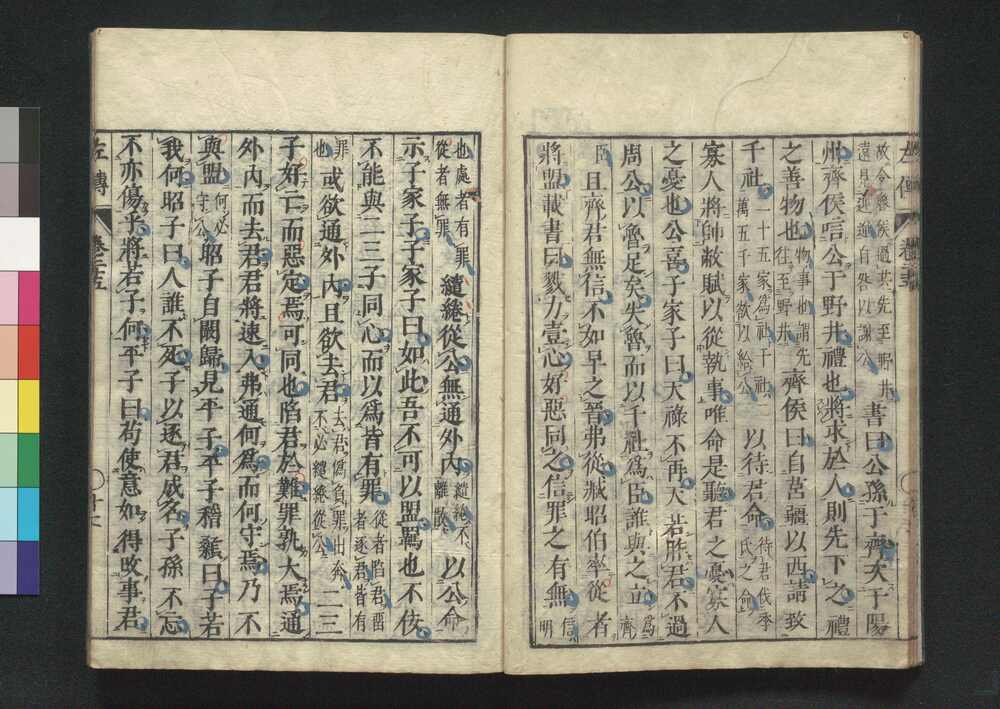 左傳 卷二五
故令魯侯過共先至野井
遠見迎逆自咎以謝公
書曰公孫于齊次于陽
州齊侯唁公于野井禮也將求於人則先下之禮
之善物也
物事也謂先
往至野井
齊侯曰自莒疆以西請致
千社
二十五家爲社千社二
萬五千家欲以給公
以待君命
待君伐季
氏之命
寡人將帥敝賦以從執事唯命是聽君之憂寡人
之憂也公喜子家子曰天祿不再天若胙君不過
周公以魯足矣失魯而以千社爲臣誰與之立
爲
齊
臣
且齊君無信不如早之晉弗從臧昭伯率從者
將盟載書曰戮力壹心好惡同之信罪之有無
信
明
也處者有罪
從者無罪
繾綣從公無通外內
繾綣不
離散
以公命
示子家子子家子曰如此吾不可以盟羈也不佞
不能與二三子同心而以爲皆有罪
從者陷君留
者逐君皆有
罪
也
或欲通外內且欲去君
去君僞負罪出奔
不必繾綣從公
二三
子好亡而惡定焉可同也陷君於難罪孰大焉通
外內而去君君將速入弗通何爲而何守焉乃不
與盟
何必
守公
昭子自闞歸見平子平子稽顙曰子若
我何昭子曰人誰不死子以逐君成名子孫不忘
不亦傷乎將若子何平子曰苟使意如得改事君
左傳 卷二五